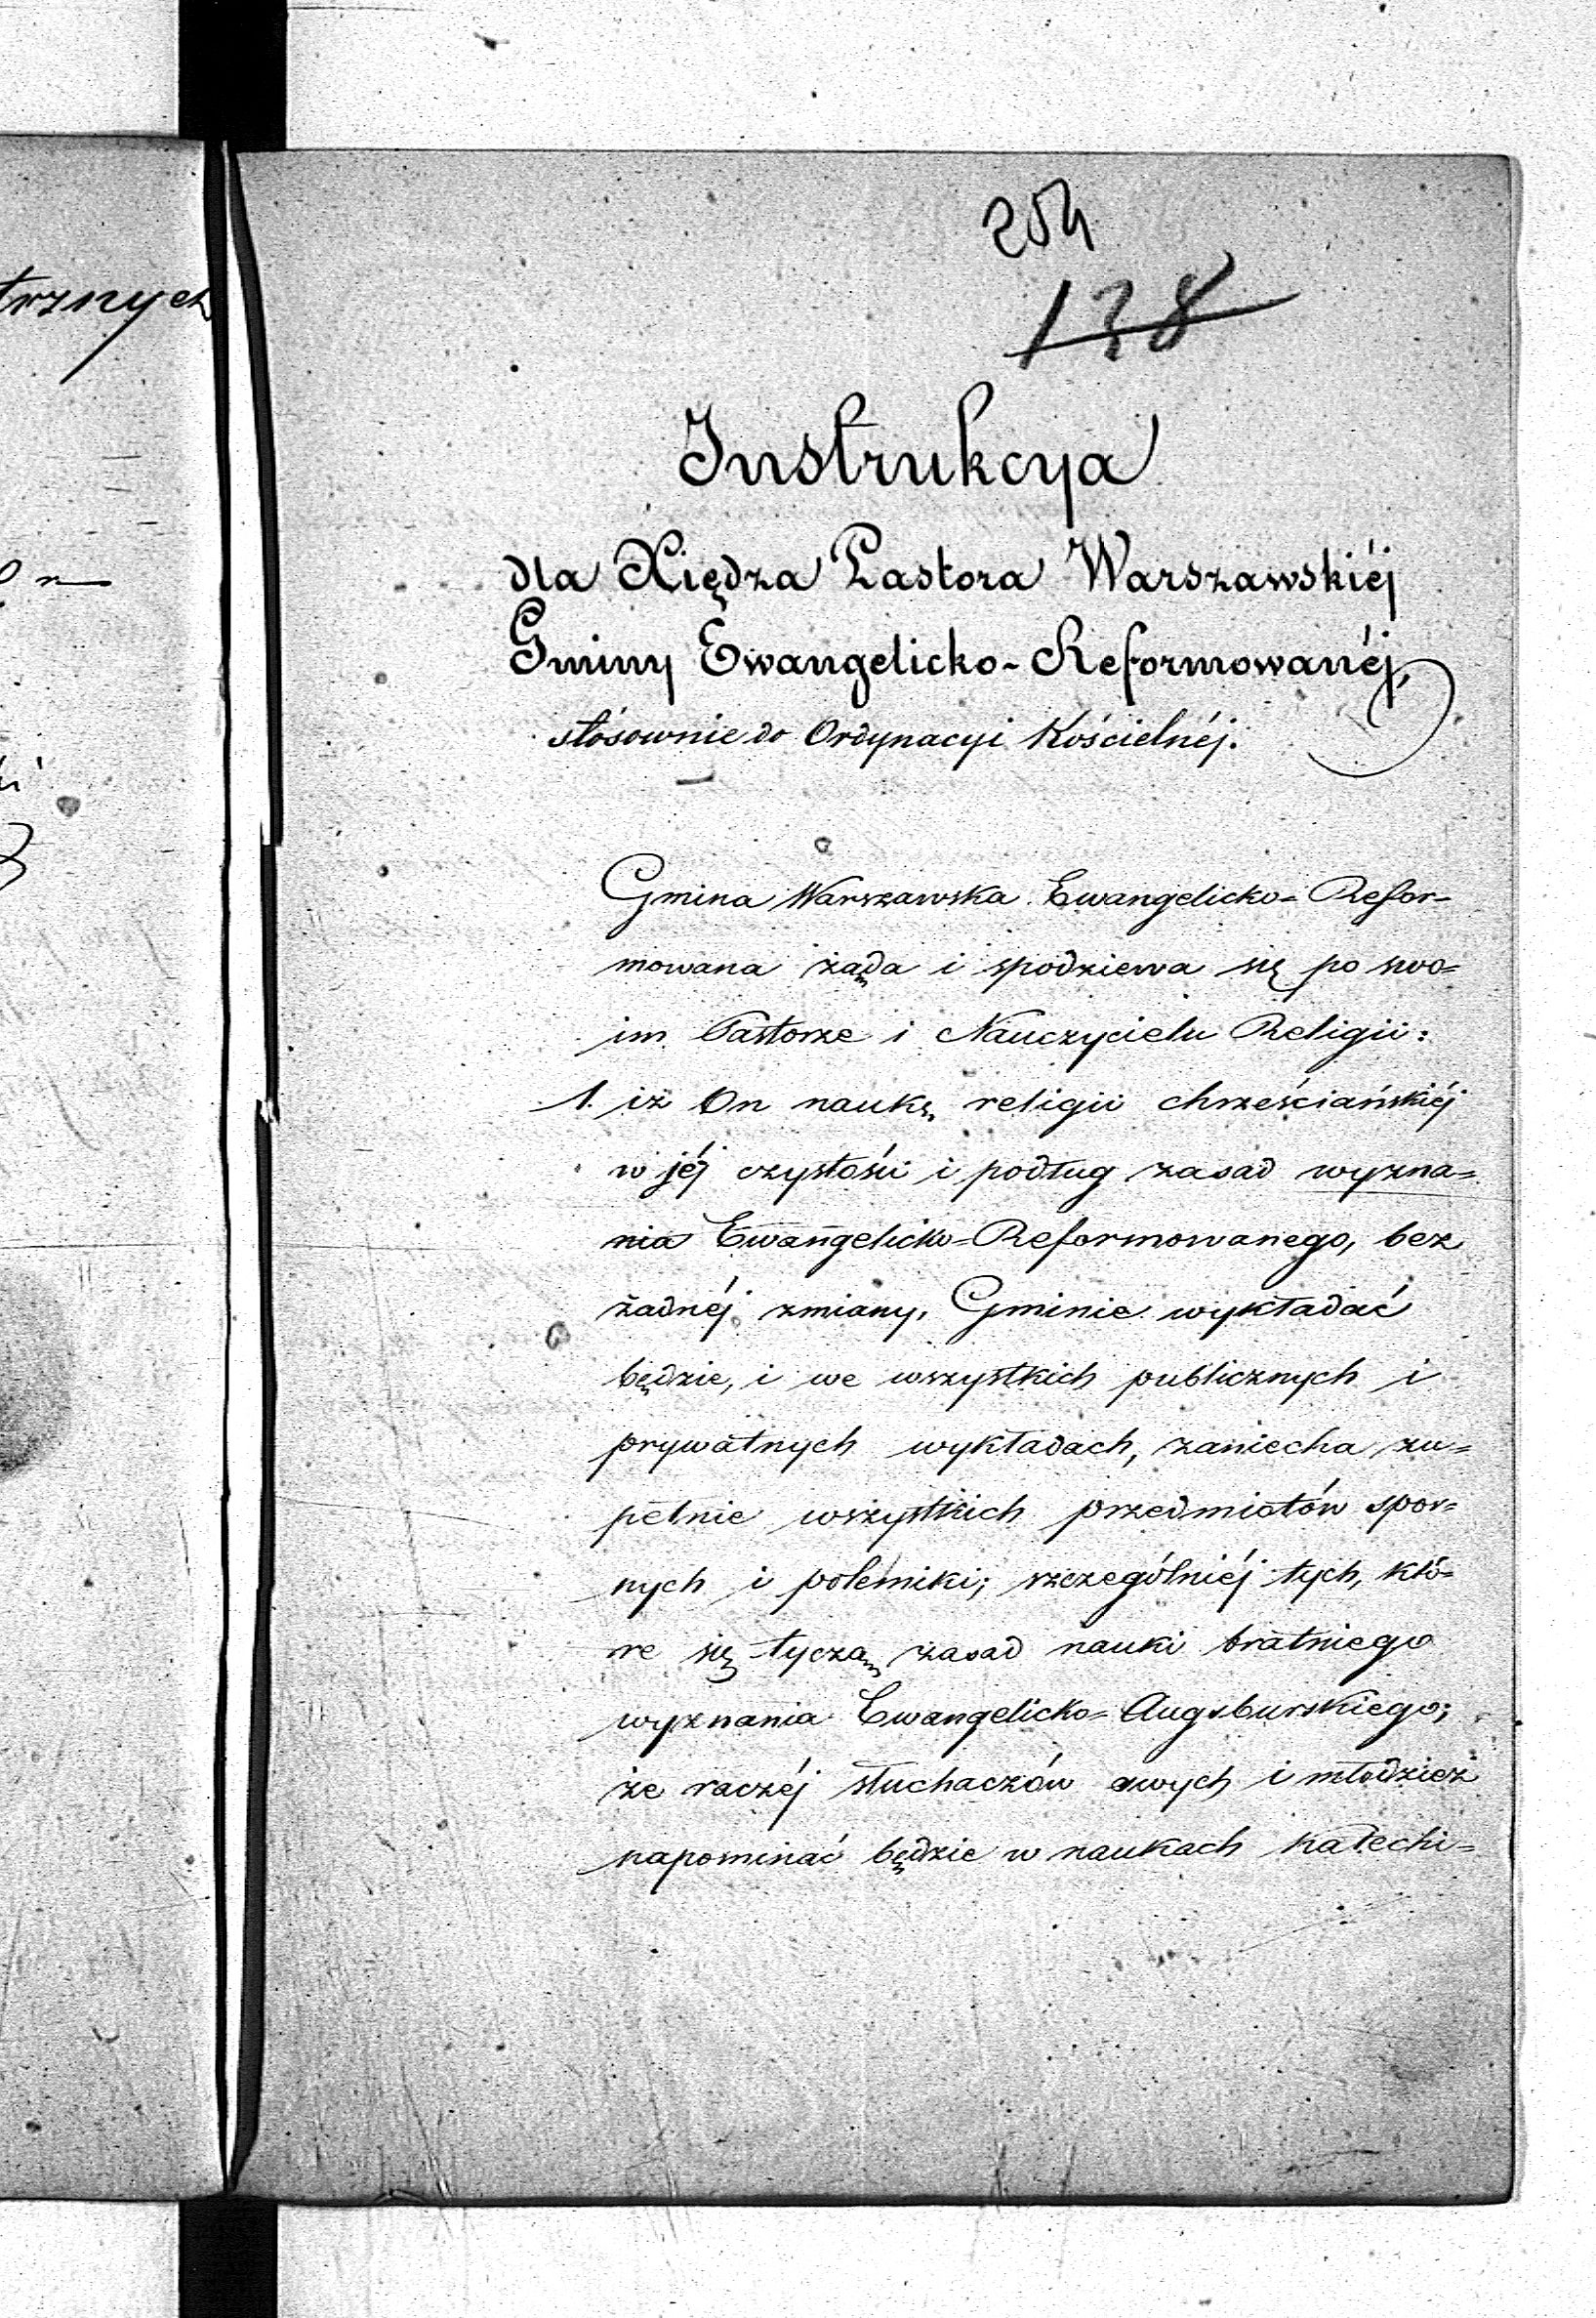 trznych
204
138
Instrukcya
dla Xiędza Pastora Warszawskiéj
Gminy Ewangelicko-Reformowanéj,
stósownie do Ordynacyi Kościelnéj.
Gmina Warszawska Ewangelicko-Refor-
mowana żąda i spodziewa się po swo-
im Pastorze i Nauczycielu Religii:
1. iż On naukę religii chrześciańskiéj
w jéj czystości i podług zasad wyzna-
nia Ewangelicko-Reformowanego, bez
żadnéj zmiany, Gminie wykładać
będzie, i we wszystkich publicznych i
prywatnych wykładach, zaniecha zu-
pełnie wszystkich przedmiotów spor-
nych i polemiki; szczególniéj tych, któ-
re się tyczą zasad nauki bratniego
wyznania Ewangelicko-Augsburskiego;
że raczéj słuchaczów swych i młodzież
napominać będzie w naukach katechi-